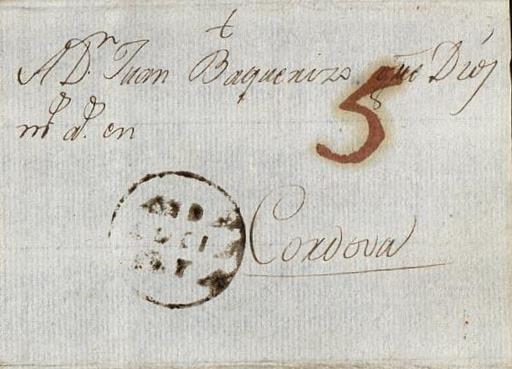 A Dn. Juan Baquerizo que Dios
ms. as. en
5
Cordova